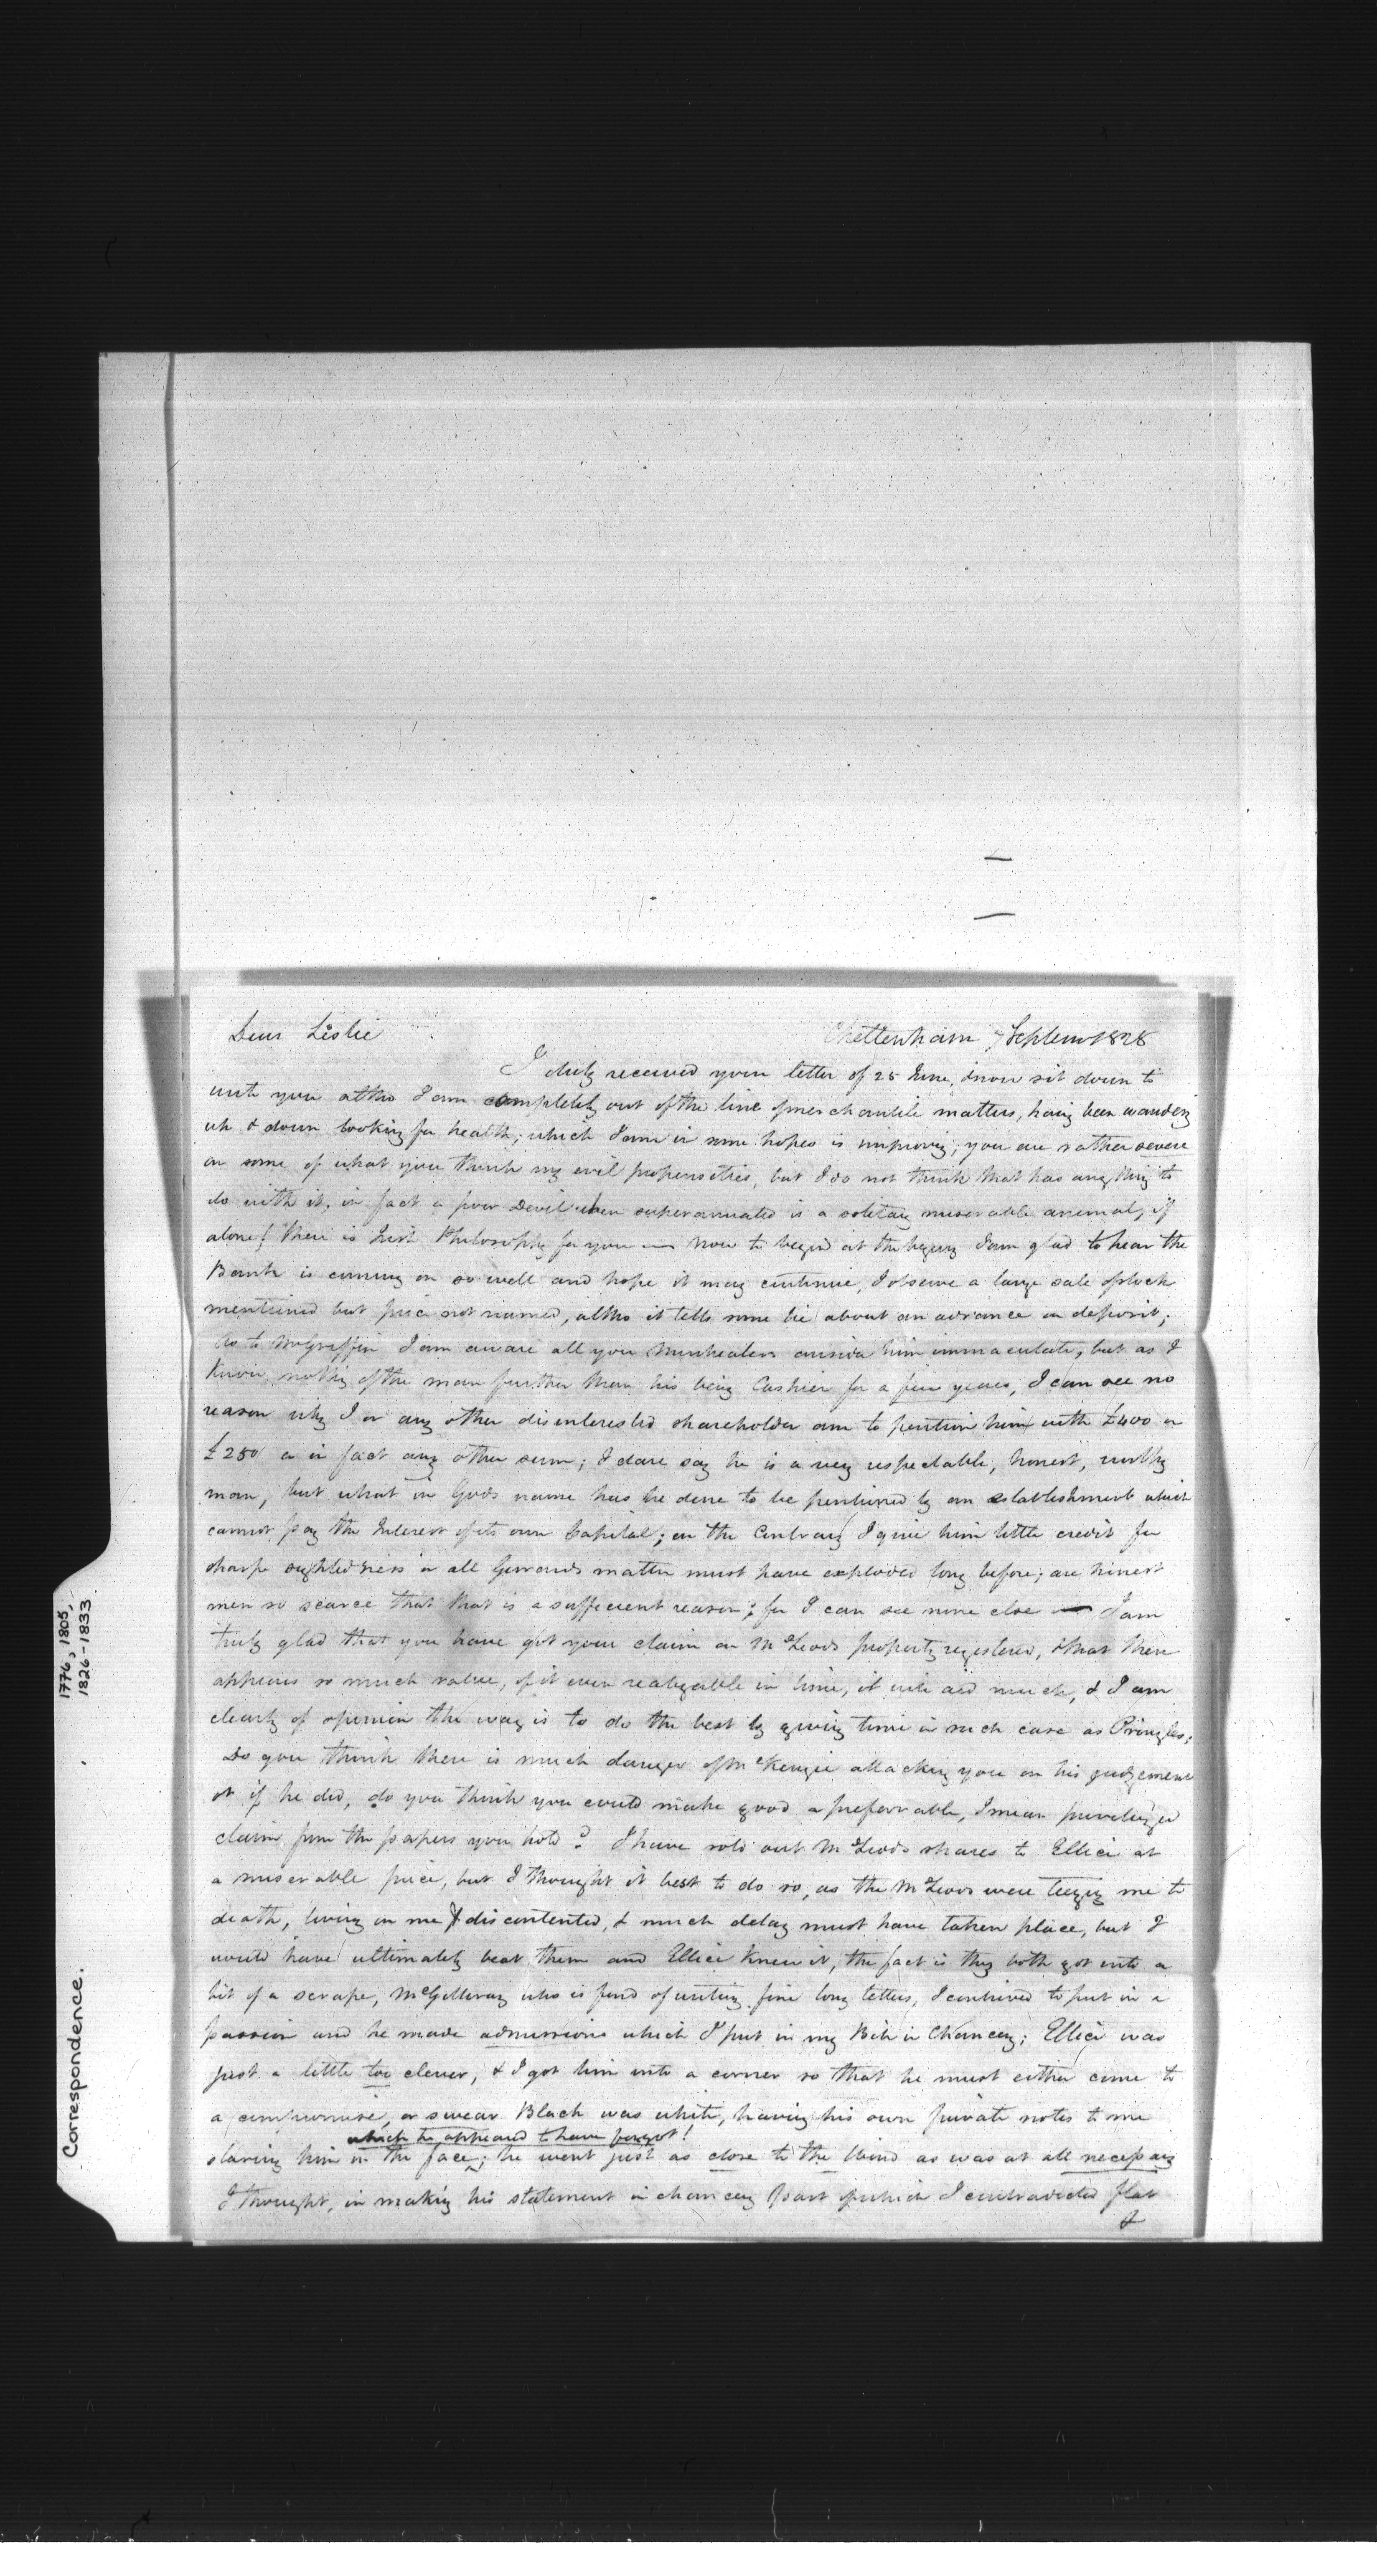 Dear Leslie
Cheltenham 7 Septem 1828
I duly received your letter of 25 June, & now sit down to
write you altho I am completely out of the line of merchantile matters, having been wandering
up & down looking for health; which I am in some hopes is improving; you are rather severe
on some of what you think my evil propensities, but I do not think that has any thing to
do with it, in fact a poor Devil when superannuated is a solitary miserable animal, if
alone! there is Irish Philosophy for you — Now to begin at the beging I am glad to hear the
Bank is coming on so well and hope it may continue, I observe a large sale of stock
mentioned but price not named, altho it tells some lie about an advance on deposit;
As to McGriffin I am aware all you Montrealers consider him immaculate, but as I
know nothing of the man further than his being Cashier for a few years, I can see no
reason why I or any other disinterested shareholder am to pention him with £400 or
£250 or in fact any other sum; I dare say he is a very respectable, honest, worthy
man, but what in Gods name has he done to be pentioned by an establishment which
cannot pay the Interest of its own Capital; on the Contrary I give him little credit for
sharp sightedness or all Gerrards matter must have exploded long before; are honest
men so scarce that that is a sufficient reason; for I can see none else — I am
truly glad that you have got your claim on McLeods property registered, & that there
appears so much value, if it even realizable in time, it will aid much, & I am
clearly of opinion the way is to do the best by giving time in such case as Pringles;
Do you think there is much danger of McKenzie attacking you on his judgement
or if he did, do you think you could make good a preferable, I mean priveledged
claim from the papers you hold? I have sold out McLeods shares to Ellice at
a miserable price, but I thought it best to do so, as the McLeods were teezing me to
death, living on me & discontented, & much delay must have taken place, but I
would have ultimately beat them and Ellice knew it, the fact is they both got into a
bit of a scrape, McGillivray who is fond of writing fine long letters, I contrived to put in a
passion and he made admissions which I put in my Bill in Chancery; Ellice was
just a little too clever, & I got him into a corner so that he must either come to
a compromise, or swear Black was white, having his own private notes to me
which he appeard to have forgot!
staring him in the face; he went just as close to the Wind as was at all necessary
I thought, in making his statement in chancery part of which I contradicted flat
&
Correspondence.
1776, 1805,
1826-1833